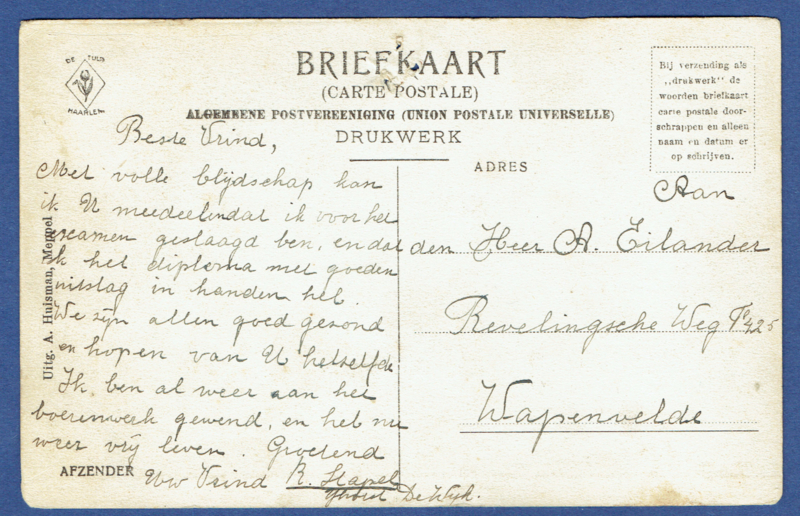 DE TULP
HAARLEM
BRIEFKAART
(CARTE POSTALE)
ALGEMEENE POSTVEREENIGING (UNION POSTALE UNIVERSELLE)
DRUKWERK
Bij verzending als
„drukwerk" de
woorden briefkaart
carte postale door-
schrappen en alleen
naam en datum er
op schrijven.
ADRES
Beste Vrind,
Met volle blijdschap kan
ik U meedeelen dat ik voor het
examen geslaagd ben, en dat
ik het diploma met goeden
uitslag in handen heb.
We zijn allen goed gezond
en hopen van U hetzelfde
Ik ben al weer aan het
boerenwerk gewend, en het nu
weer vrij leven. Groetend
Uw Vrind R. Stapel
De Wijk.
AFZENDER
Uitg. A. Huisman, Meppel
Aan
den Heer A. Eilander
Revelingsche Weg 425
Wapenvelde